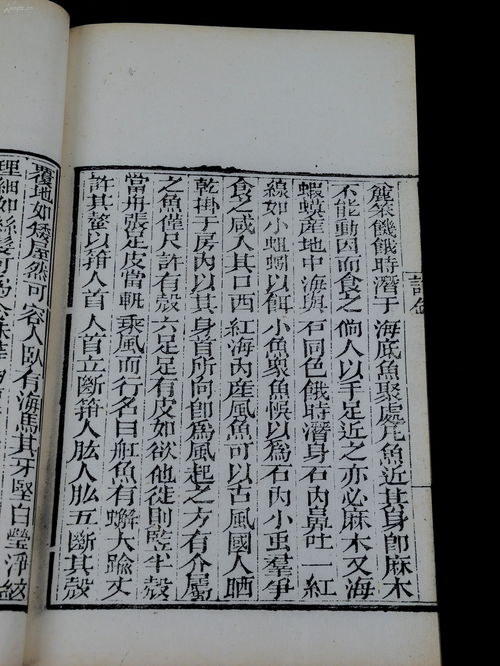 麄笨饑餓時潛于海底魚聚處凡魚近其身卽麻木
不能動因而食之倘人以手足近之亦必麻木又海
蝦蟆產地中海與石同色餓時潛身石內鼻吐一紅
線如小蚯蚓以餌小魚衆魚悞以爲石內小虫羣爭
食之咸入其口西紅海內產風魚可以古風國人晒
乾掛于房內以其身首所向卽爲風起之方有介屬
之魚僅尺許有殼六足足有皮如欲他徙則竪半殼
當舟張足皮當帆乘風而行名曰舡魚有蠏大踰丈
許其螯以箝人首人首立斷箝人肱人肱立斷其殼
覆地如矮屋然可容人臥有海馬其牙堅白瑩淨紋
理細如絲髮可爲念珠等